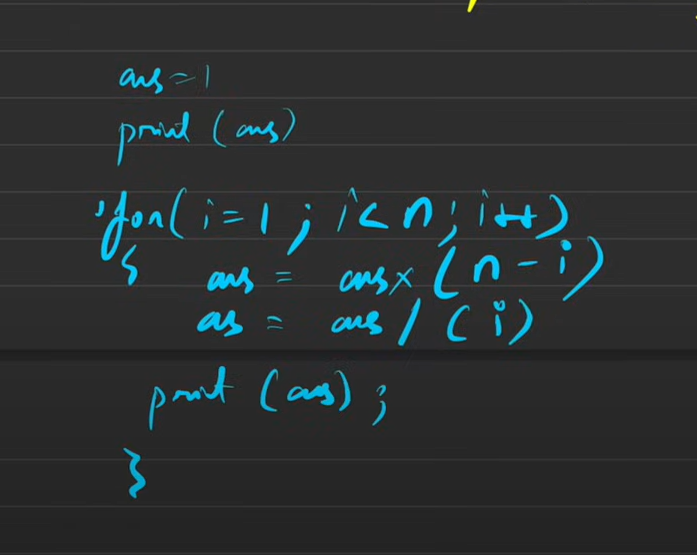 ans = 1
print (ans)
for( i = 1 ; i < n ; i++)
{ ans = ans x (n - i)
as = ans / ( i )
print (ans) ;
}